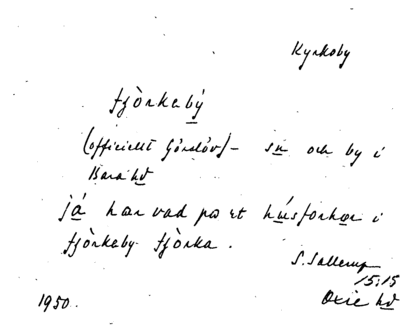 Kyrkoby
tjòrkabý
(officiellt Görslöv) - sn och by i
Bara hd
já har vad pa et húsforhør i
tjòrkeby tjòrka.
S. Sallerup
15:15
Oxie hd
1950.